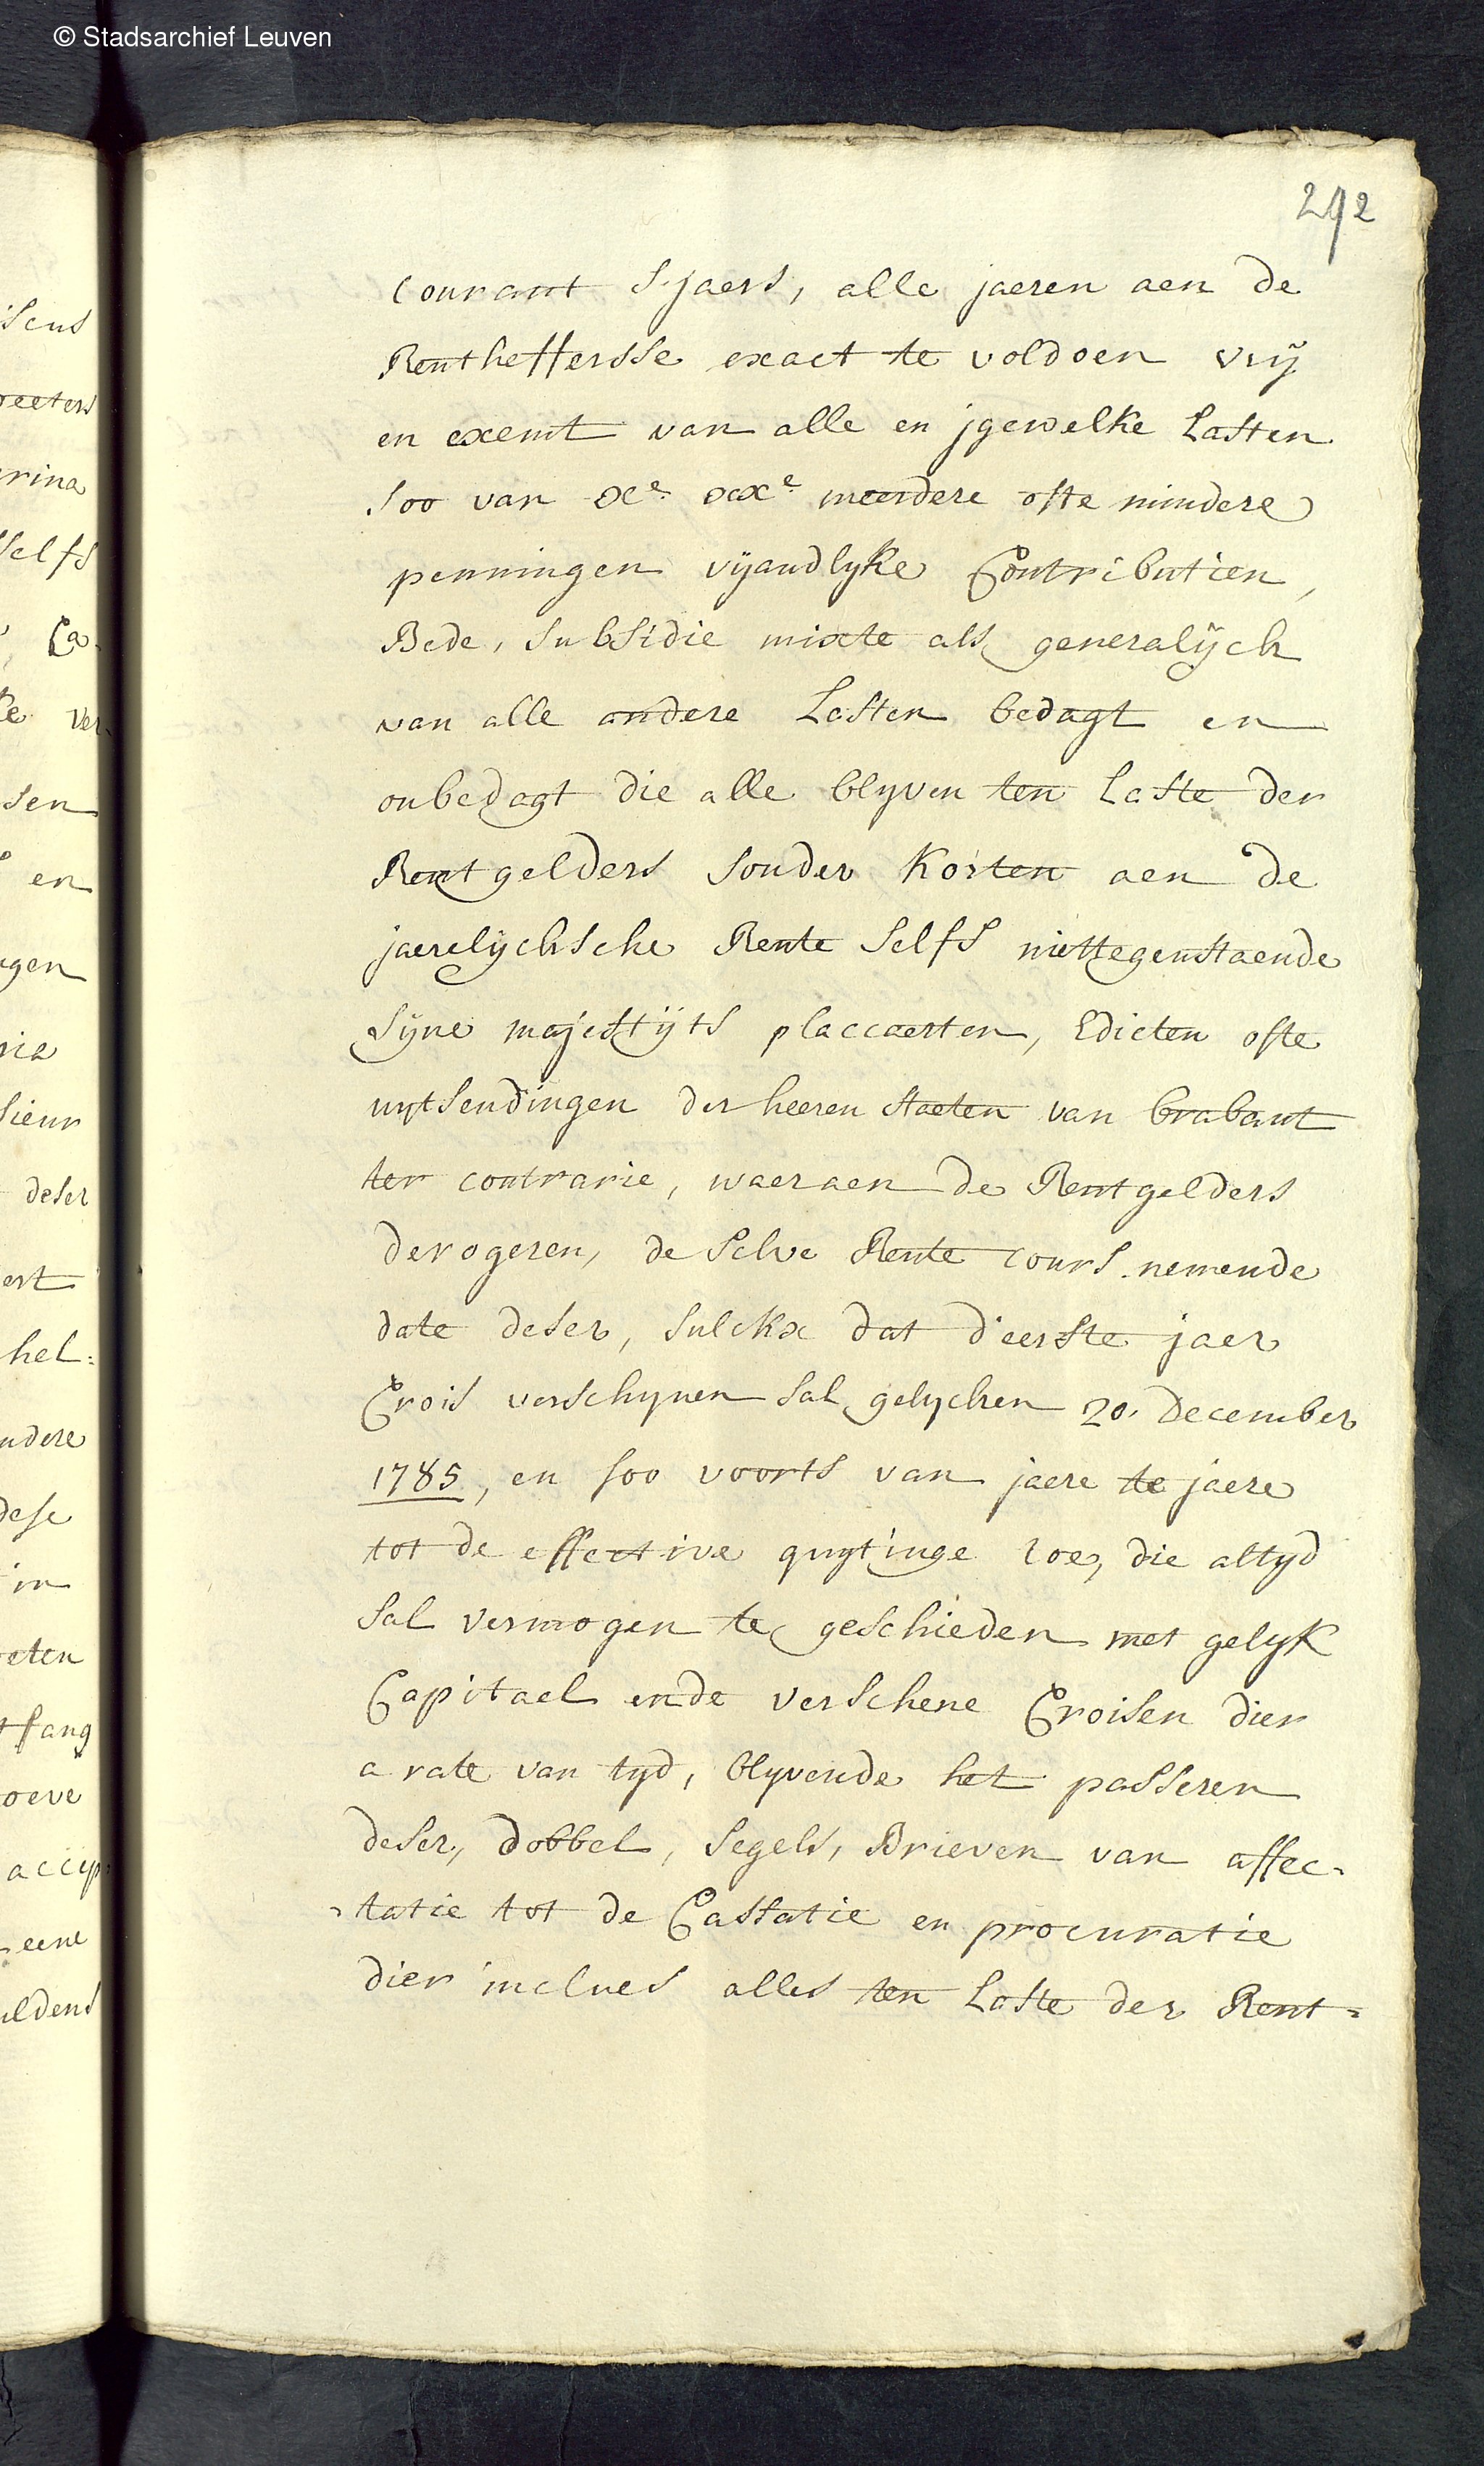 © Stadsarchief Leuven
292
courant s'jaers, alle jaeren aen de
Rentheffersse exact te voldoen vrÿ
en exemt van alle en jgewelke Lasten
soo van xe. xxe. meerdere ofte mindere
penningen vÿandlyke Contributien,
Bede, subsidie mixte als generalÿck
van alle andere Lasten bedagt en
onbedagt die alle blyven ten Laste der
Rentgelders sonder Korten aen de
jaerelÿcksche Rente selfs niettegenstaende
sÿne majestÿts placcaerten, Edicten ofte
uytsendingen der heeren staeten van brabant
ter contrarie, waeraen de Rentgelders
derogeren, de selve Rente cours nemende
date deser, sulckx dat d'eerste jaer
Crois verschynen sal gelycken 20. December
1785, en soo voorts van jaere te jaere
tot de effective quytinge toe, die altyd
sal vermogen te geschieden met gelyk
Capitael ende verschene Croisen dier
a rate van tyd, blyvende het passeren
deser, dobbel, segels, Brieven van affec-
-tatie tot de Cassatie en procuratie
dier inclues alles ten Laste der Rent=
iseus
peeters
rina
selfs
Ca-
ver-
sen
en
gen
ria
sieur
deser
ert
hel=
ndere
dese
in
eten
fang
oeve
accep=
eene
uldens